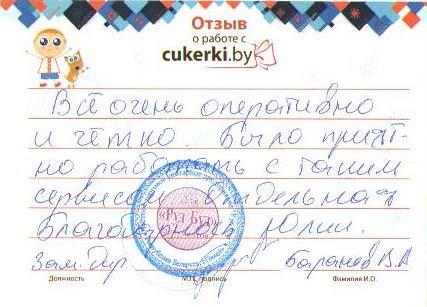 Отзыв
о работе с
cukerki.by
Всё очень оперативно
и чётко. Было прият-
но работать с таким
сервисом. Отдельная
благодарность Юлии.
Зам. Дир Баранов В.А
Должность М.П. подпись Фамилия И.О.
«Руд-Бел»
Республика Беларусь